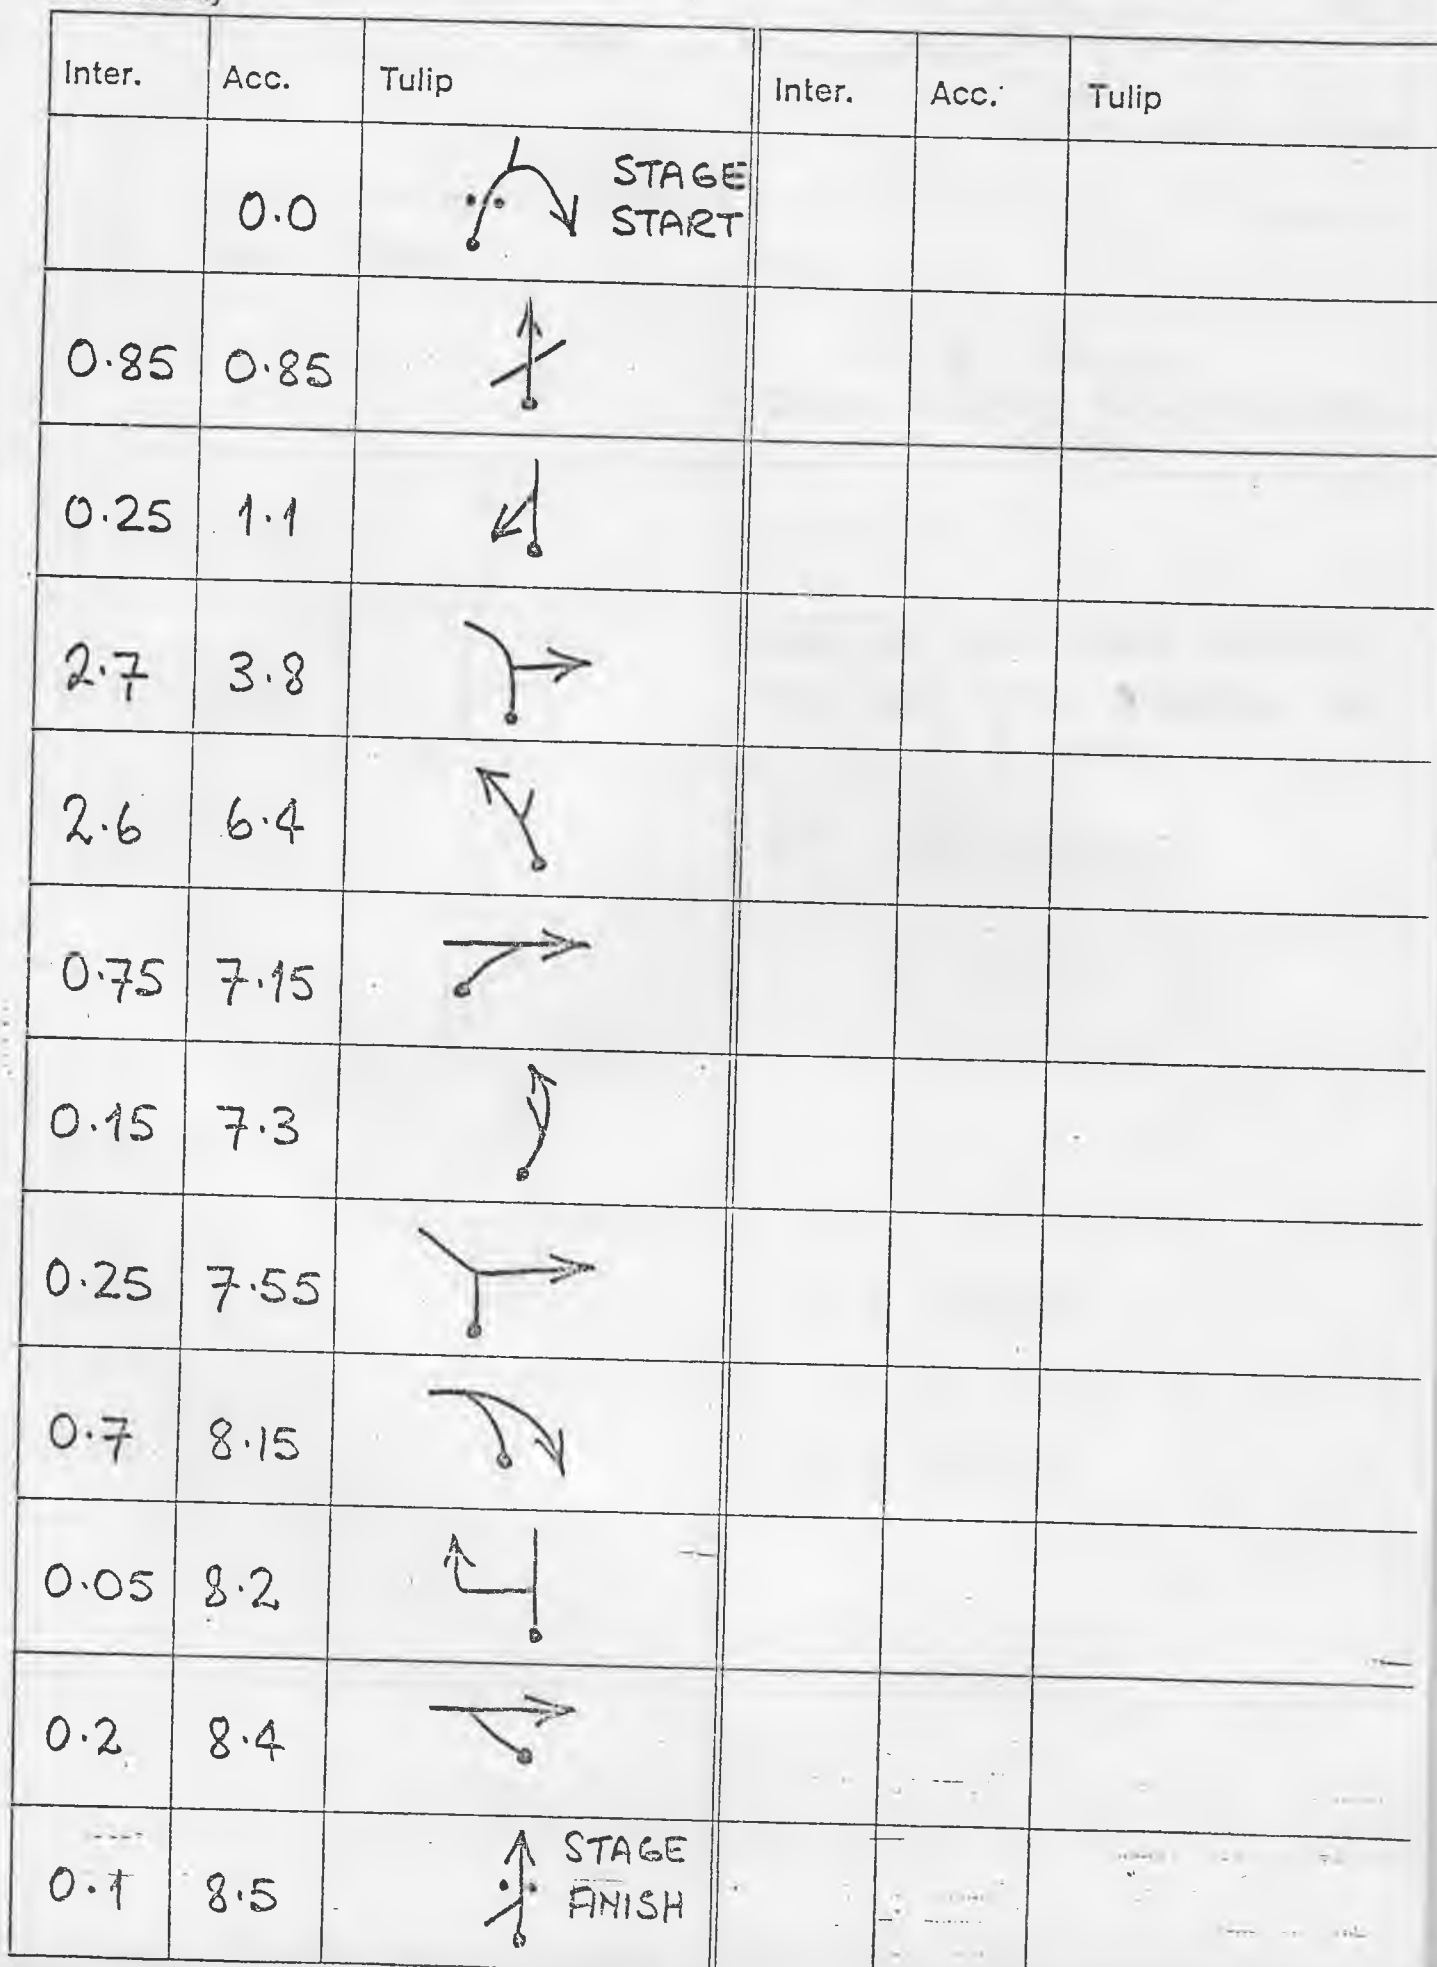 Inter. Acc. Tulip Inter. Acc. Tulip
0.0 STAGE START
0.85 0.85
0.25 1.1
2.7 3.8
2.6 6.4
0.75 7.15
0.15 7.3
0.25 7.55
0.7 8.15
0.05 8.2
0.2 8.4
0.1 8.5 STAGE FINISH